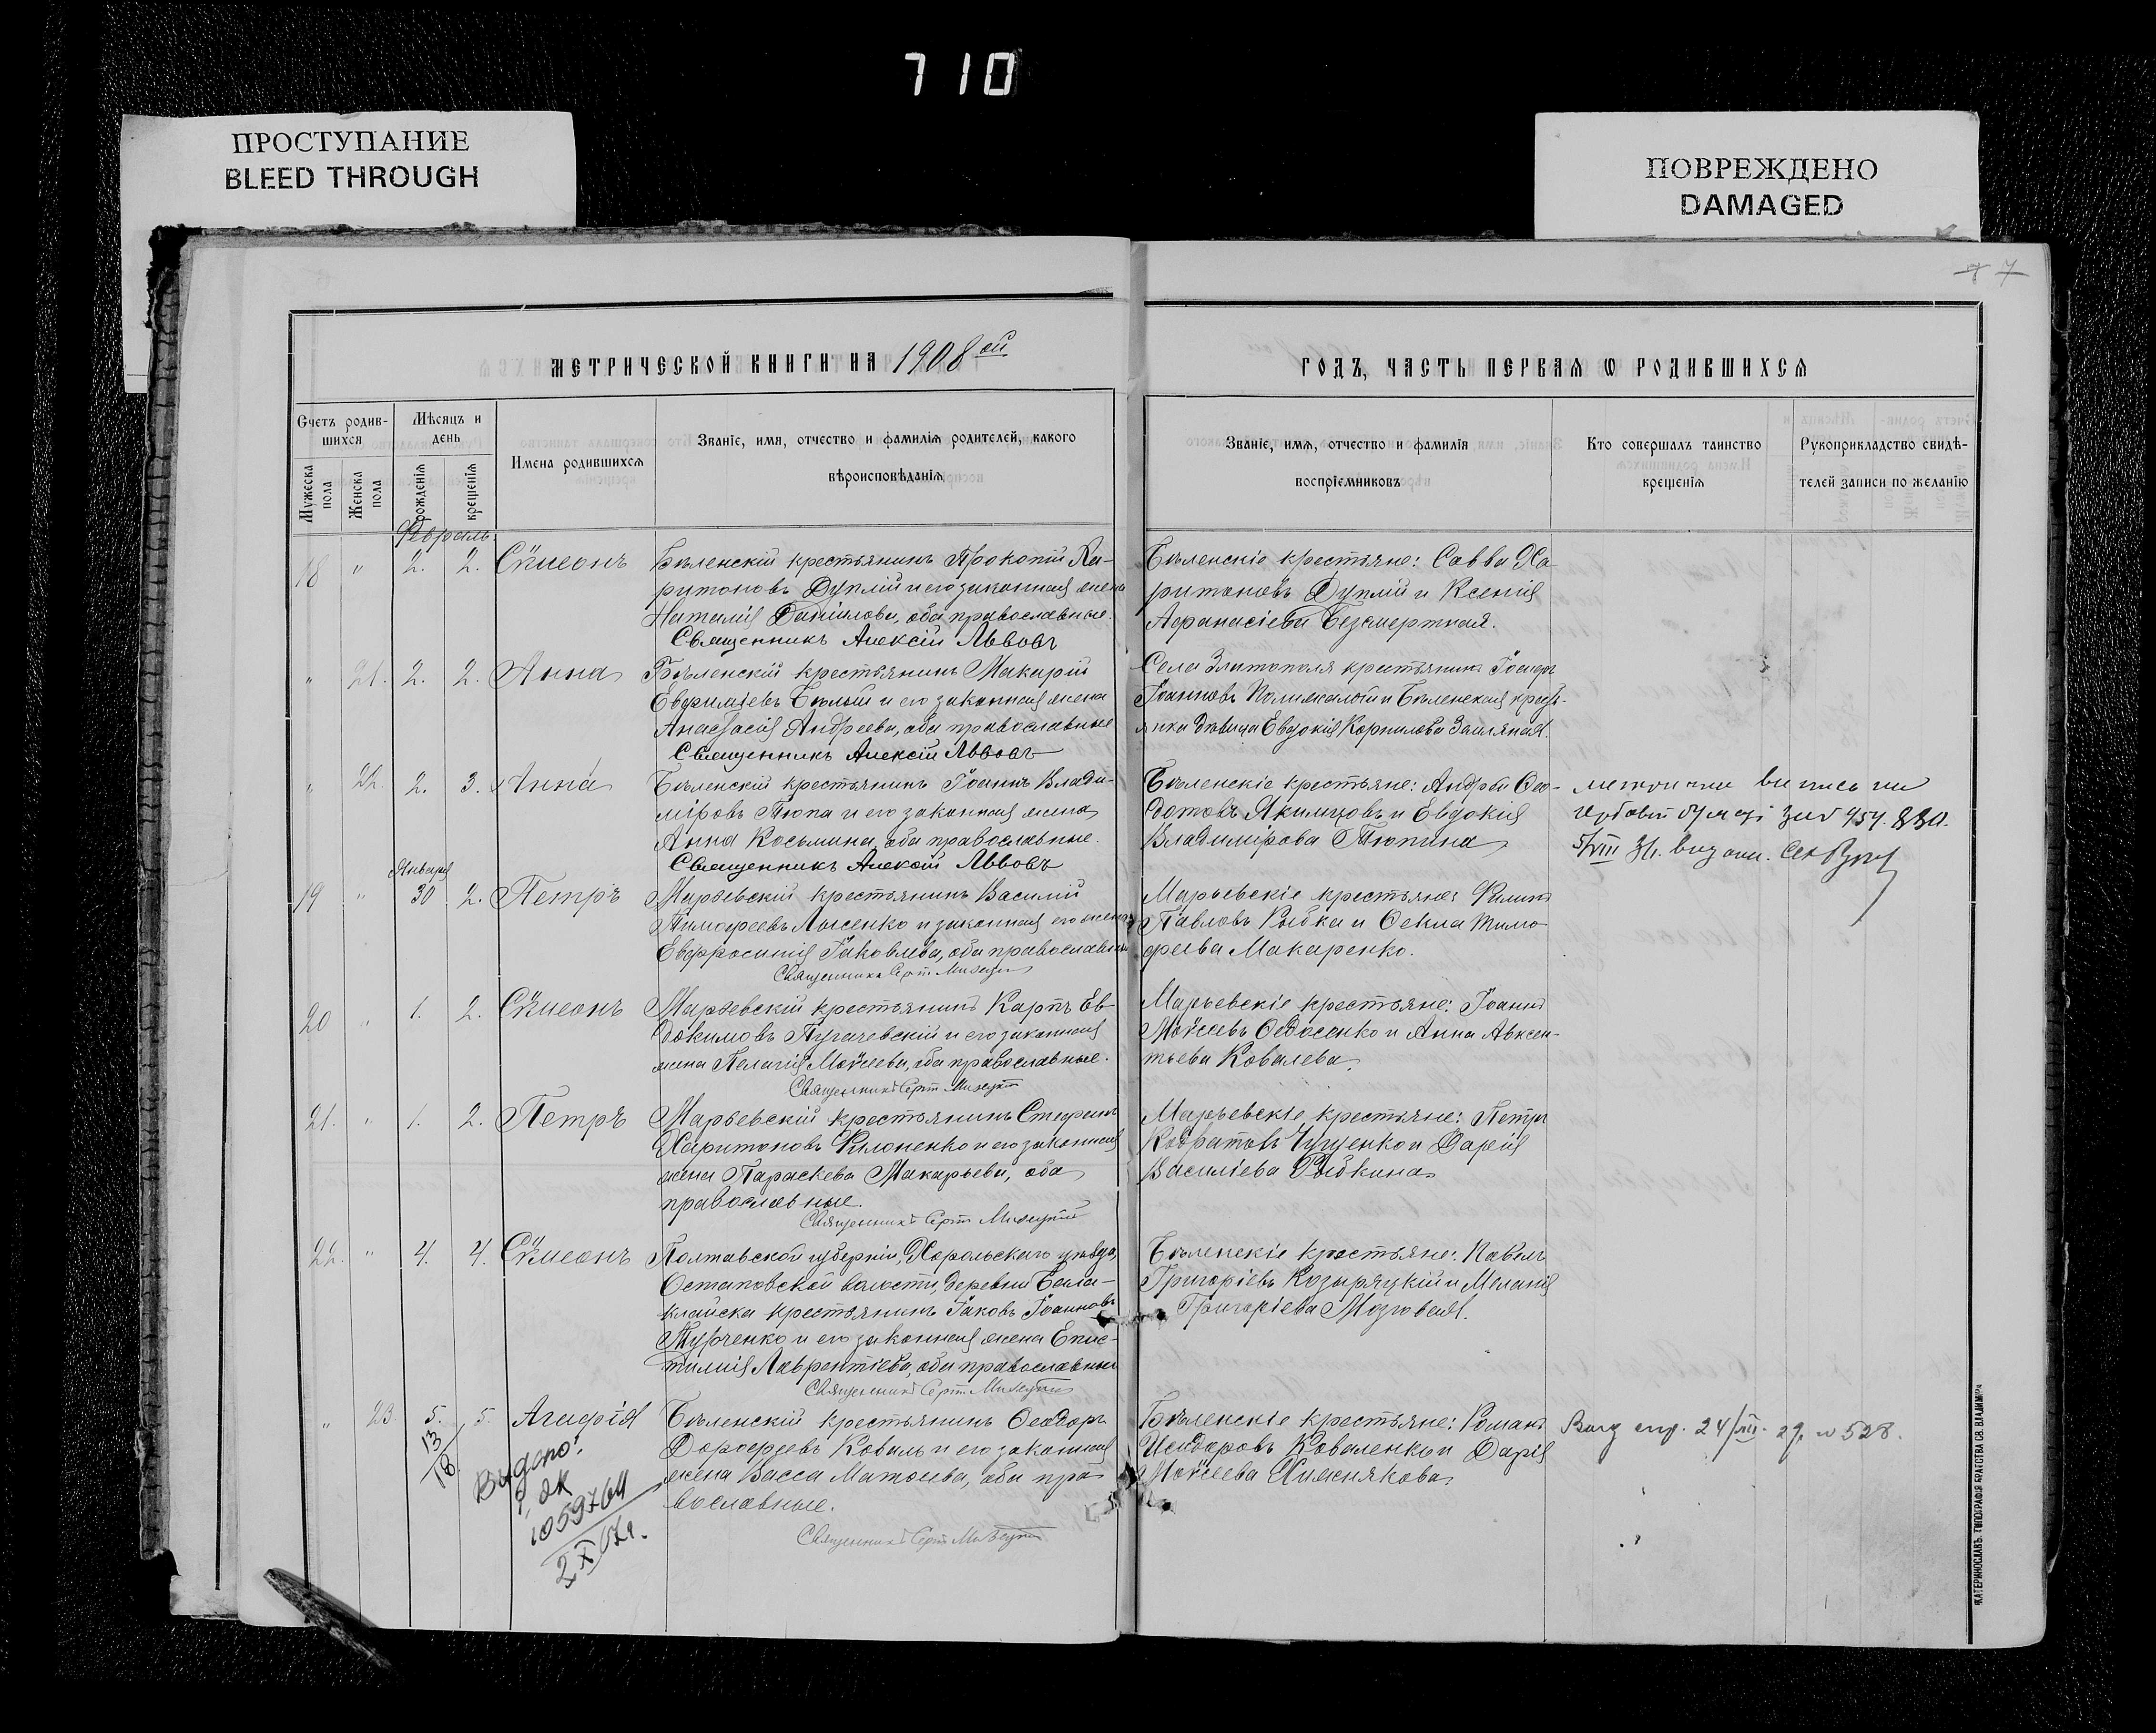 710
ПРОСТУПАНИЕ
BLEED THROUGH
ПОВРЕЖДЕНО
DAMAGED
7
МЕТРИЧЕСКОЙ КНИГИ НА 1908ой
ГОДЪ, ЧАСТЬ ПЕРВАЯ Ѡ РОДИВШИХСЯ
Счетъ родив-
шихся
Мужеска пола
Женска пола
Мѣсяцъ и
день
рожденія
крещенія
Имена родившихся
Званіе, имя, отчество и фамилія родителей, какого
вѣроисповѣданія
Званіе, имя, отчество и фамилія
воспріемниковъ
Кто совершалъ таинство
крещенія
Рукоприкладство свидѣ-
телей записи по желанію
Февраль
18 " 2. 2. Сѵмеонъ
Бѣленскій крестьянинъ Прокопій Ха-
ритоновъ Дуплій и его законная жена
Наталія Даніилова, оба православные.
Священникъ Алексій Львовъ
Бѣленскіе крестьяне: Савва Ха-
ритоновъ Дуплій и Ксенія
Афанасіева Безсмертная.
" 21. 2. 2. Анна
Бѣленскій крестьянинъ Макарій
Евфиміевъ Бѣлый и его законная жена
Анастасія Андреева, оба православные
Священникъ Алексій Львовъ
Села Златополя крестьянинъ
Іоанновъ и Бѣленская кресть-
янка дѣвица Евдокія Корнилова Земляная.
" 22. 2. 3. Анна
Бѣленскій крестьянинъ Іоаннъ Влади-
міровъ Тюпа и его законная жена
Анна Косьмина, оба православные.
Священникъ Алексій Львовъ
Бѣленскіе крестьяне: Андрей Ѳео-
дотовъ Якимцовъ и Евдокія
Владимірова Тюпина
5/VIII
Январь
19 " 30 2. Петръ
Марьевскій крестьянинъ Василій
Тимофеевъ Лысенко и законная его жена
Евфросинія Іаковлева, оба православные
Священникъ
Марьевскіе крестьяне: Филиппъ
Павловъ Рыбка и Ѳекла Тимо-
феева Макаренко.
20 " 1. 2. Сѵмеонъ
Марьевскій крестьянинъ Карпъ Ев-
докимовъ Пугачевскій и его законная
жена Пелагія Моѵсеева, оба православные.
Священникъ
Марьевскіе крестьяне: Іоаннъ
Моѵсеевъ Ѳедосенко и Анна Авксен-
тьева Ковалева.
21. " 1. 2. Петръ
Марьевскій крестьянинъ Стефанъ
Харитоновъ Филоненко и его законная
жена Параскева Макарьева, оба
православные.
Священникъ
Марьевскіе крестьяне: Петръ
Кодратовъ и Дарія
Василіева Рыбкина
22. " 4. 4. Сѵмеонъ
Полтавской губерніи, Хорольскаго уѣзда,
Остаповской волости, деревни Бала-
клайска крестьянинъ Іаковъ Іоанновъ
и его законная жена Епис-
тимія Лаврентіева, оба православные
Священникъ
Бѣленскіе крестьяне: Павелъ
Григоріевъ Козыряцкій и Меланія
Григоріева Мозговая.
" 23. 5. 5. Агафія
Бѣленскій крестьянинъ Ѳеодоръ
Дорофеевъ Коваль и его законная
жена Васса Матѳеева, оба пра-
вославные.
Священникъ
Бѣленскіе крестьяне: Романъ
Исидоровъ Коваленко и Дарія
Моѵсеева Хижнякова
24/VIII 29. № 528.
13/18
Видано:
1059764
2/X
ЕКАТЕРИНОСЛАВЪ. ТИПОГРАФІЯ БРАТСТВА СВ. ВЛАДИМІРА